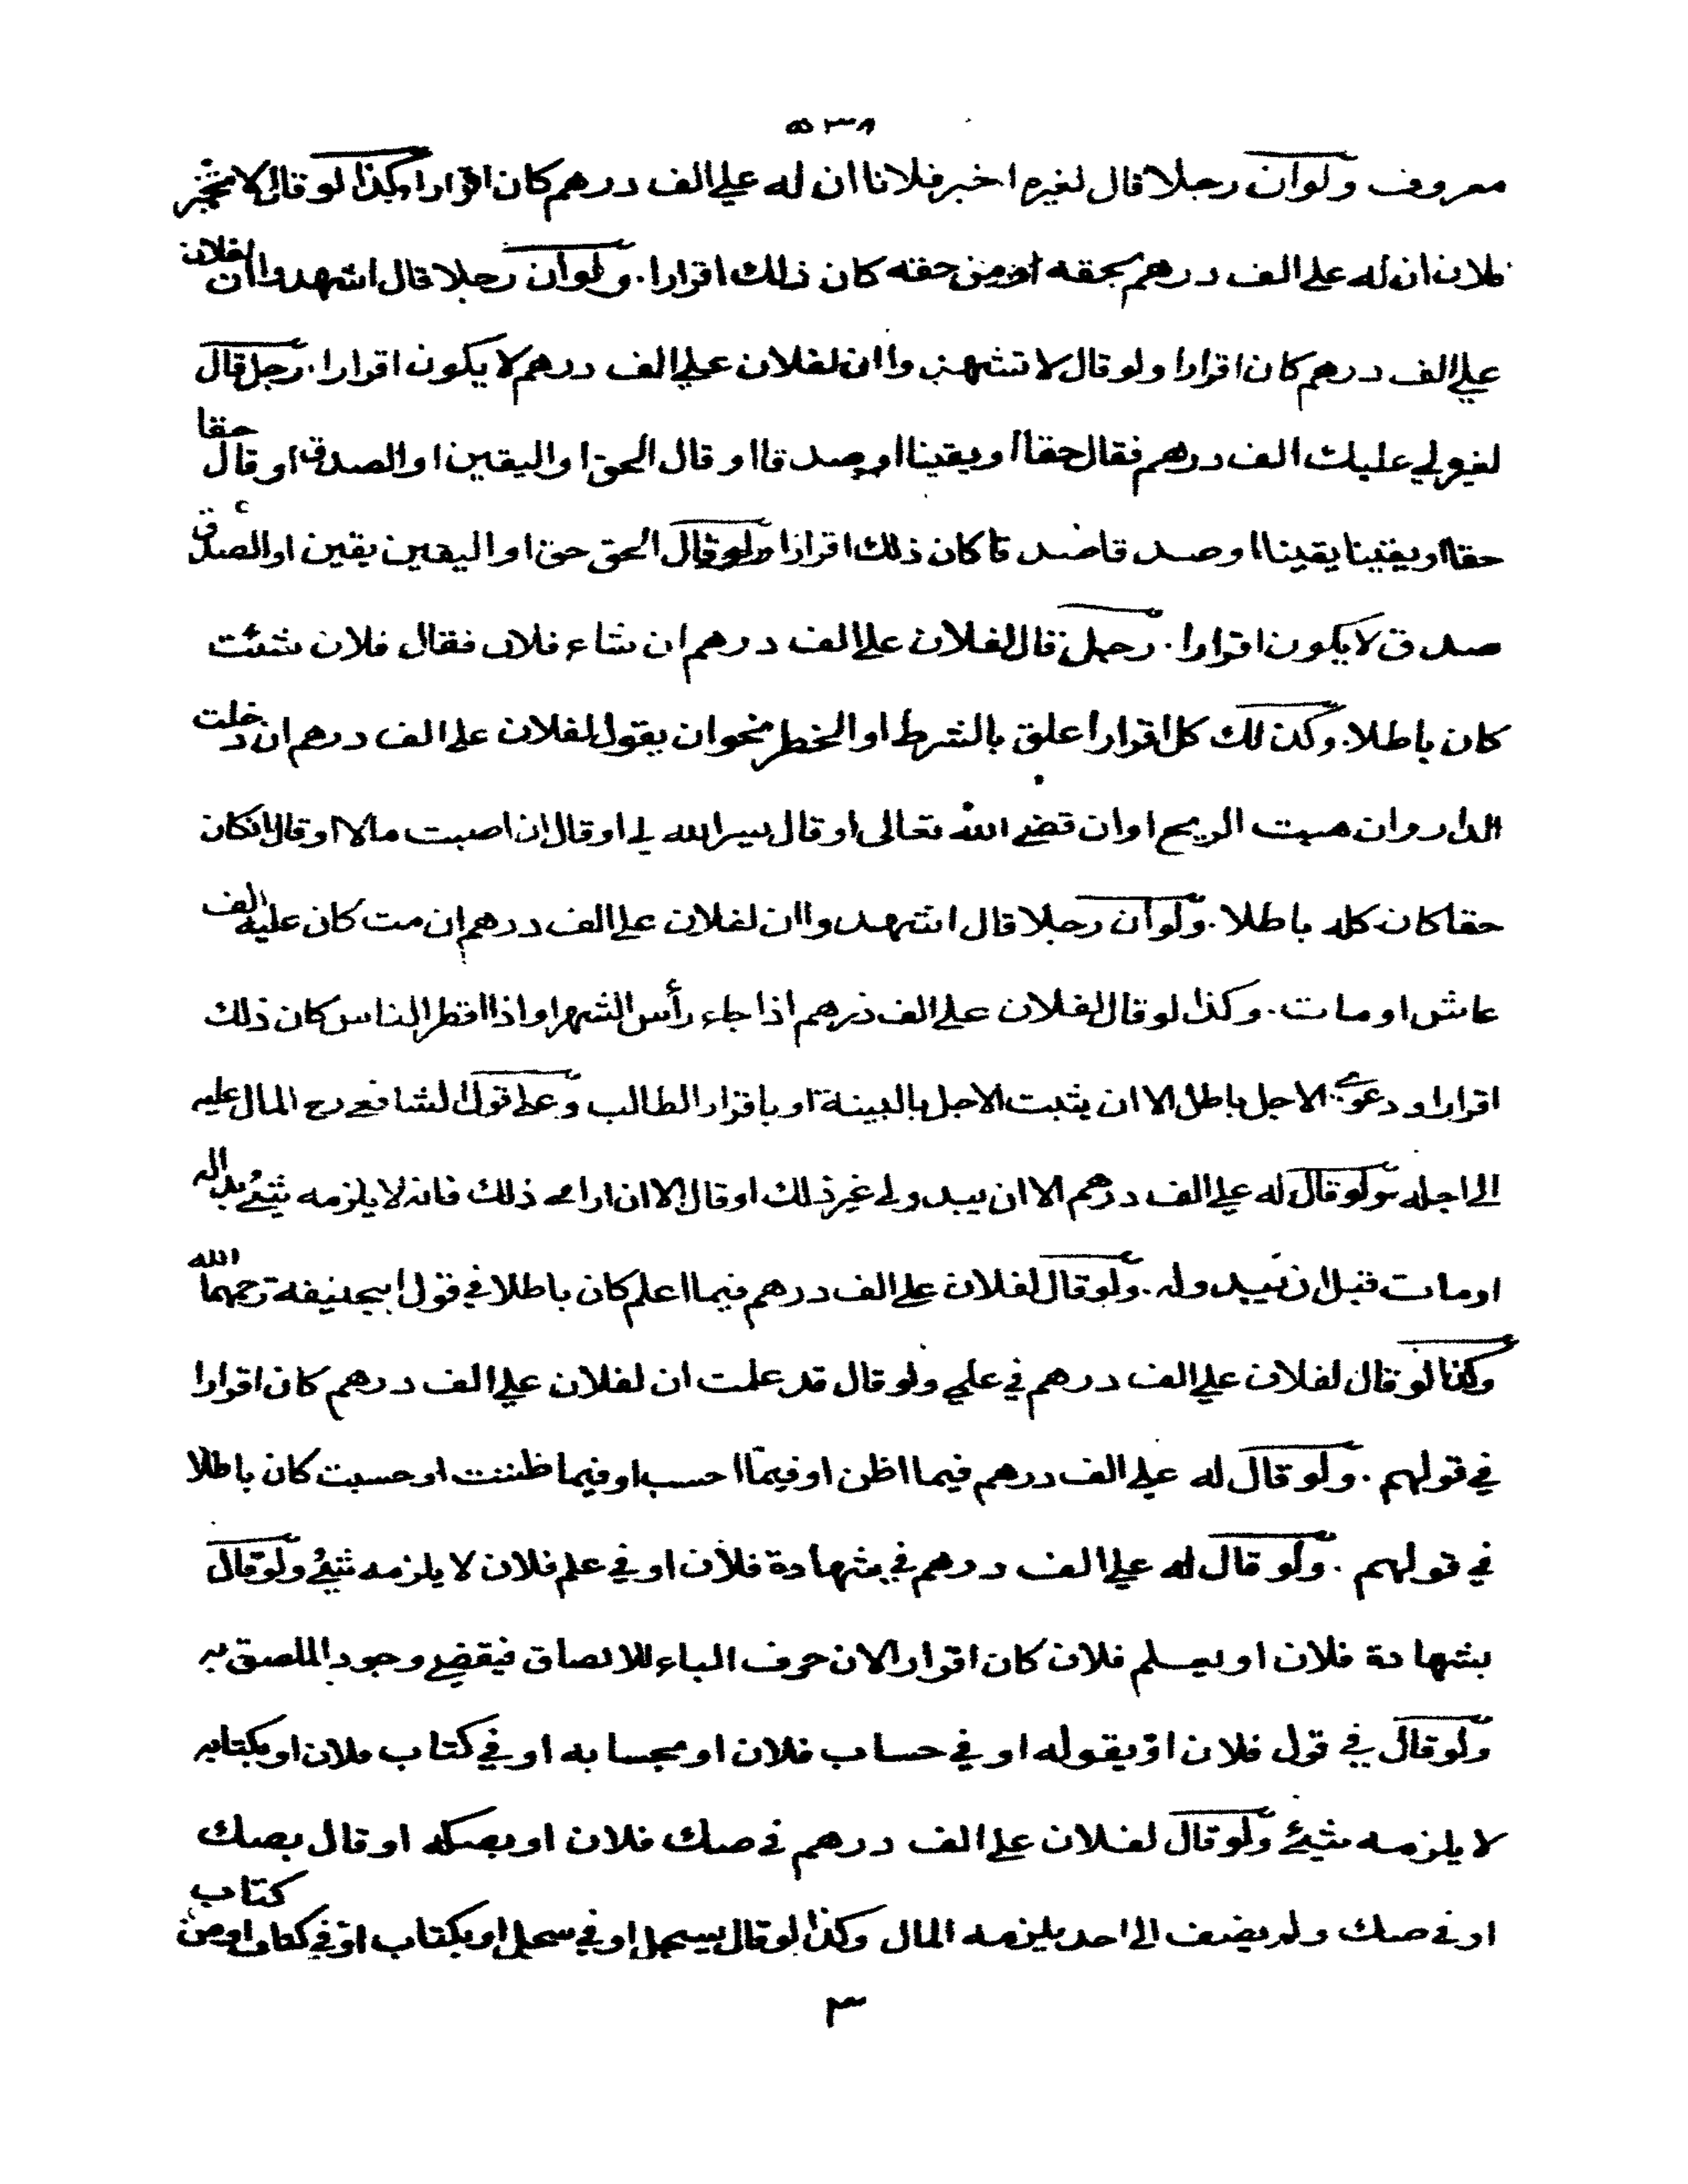 ٥٣٨
معروف ولوان رجلا قال لغيره اخبر فلانا ان له علي الف درهم كان اقرارا وكذا لو قال لا تخبر
فلان ان له علي الف درهم بحقه او من حقه كان ذلك اقرارا . ولوان رجلا قال اشهدوا ان لفلان
علي الف درهم كان اقرارا ولو قال لا تشهدوا ان لفلان علي الف درهم لا يكون اقرارا . رجل قال
لغيره لي عليك الف درهم فقال حقا او يقينا او صدقا او قال الحق او اليقين او الصدق او قال حقا
حقا او يقينا يقينا او صدقا صدقا كان ذلك اقرارا ولو قال الحق حق او اليقين يقين او الصدق
صدق لا يكون اقرارا . رجل قال لفلان علي الف درهم ان شاء فلان فقال فلان شئت
كان باطلا . وكذلك كل اقرار علق بالشرط او الخطر نحو ان يقول لفلان علي الف درهم ان دخلت
الدار وان هبت الريح او ان قضى الله تعالى او قال يسر الله لي او قال ان اصبت مالا او قال ان كان
حقا كان كله باطلا . ولوان رجلا قال اشهدوا ان لفلان علي الف درهم ان مت كان عليه الف
عاش او مات . وكذا لو قال لفلان علي الف درهم اذا جاء رأس الشهر او اذا افطر الناس كان ذلك
اقرارا ودعوى الاجل باطل الا ان يثبت الاجل بالبينة او باقرار الطالب وعلى قول الشافعي رح المال عليه
الى اجله ولو قال له علي الف درهم الا ان يبدو لي غير ذلك او قال الا ان ارى ذلك فانه لا يلزمه شيء بدا له
او مات قبل ان يبدو له . ولو قال لفلان علي الف درهم فيما اعلم كان باطلا في قول ابي حنيفة رحمهما الله
وكذا لو قال لفلان علي الف درهم في علمي ولو قال قد علمت ان لفلان علي الف درهم كان اقرارا
في قولهم . ولو قال له علي الف درهم فيما اظن او فيما احسب او فيما ظننت او حسبت كان باطلا
في قولهم . ولو قال له علي الف درهم في شهادة فلان او في علم فلان لا يلزمه شيء ولو قال
بشهادة فلان او بعلم فلان كان اقرارا لان حرف الباء للالصاق فيقضي وجود الملصق به
ولو قال في قول فلان او بقوله او في حساب فلان او بحسابه او في كتاب فلان او بكتابه
لا يلزمه شيء ولو قال لفلان علي الف درهم في صك فلان او بصكه او قال بصك
او في صك ولم يضف الى احد يلزمه المال وكذا لو قال بسجل او في سجل او بكتاب او في كتاب او من كتاب
٣